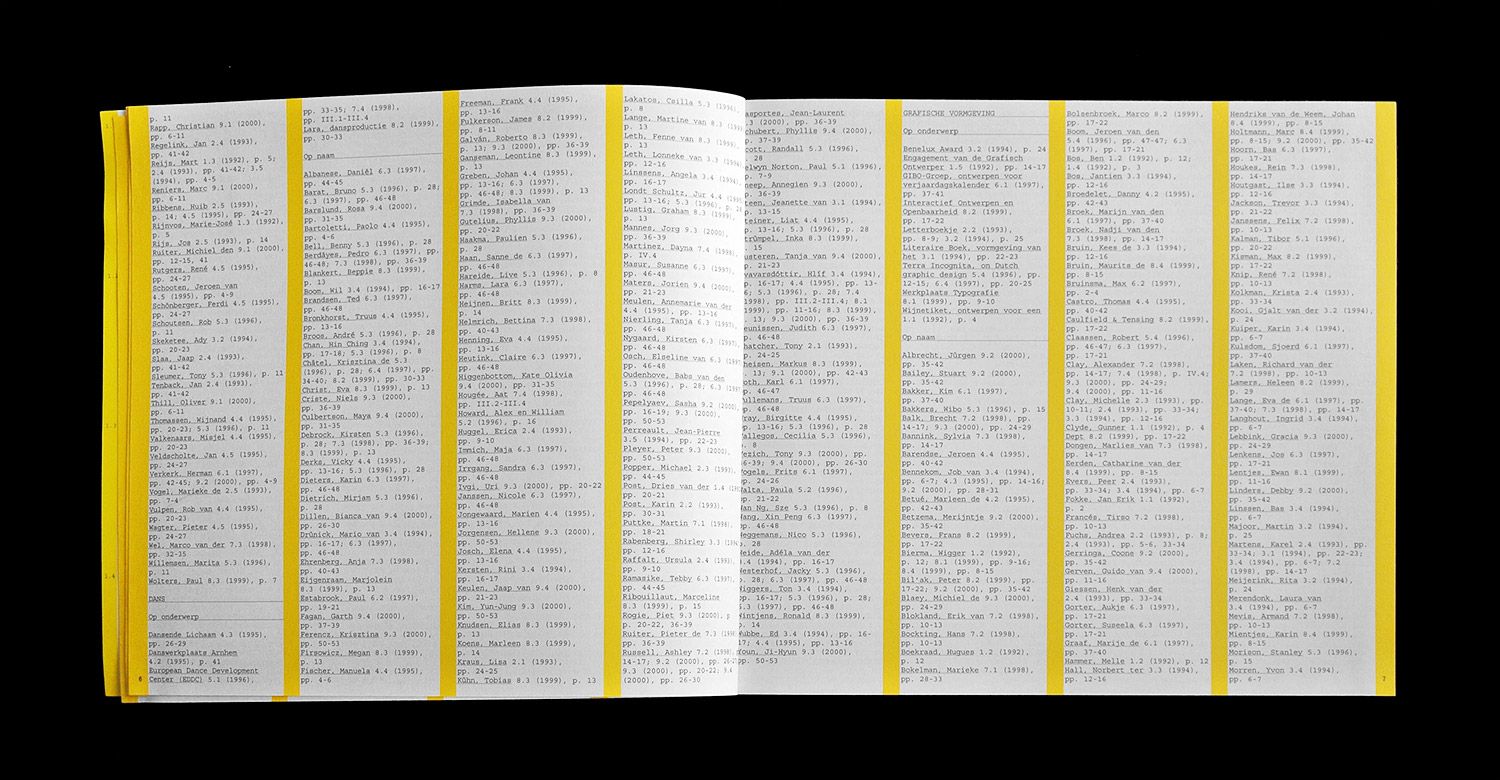 1
1.2
1.3
1.4
p. 11
Rapp, Christian 9.1 (2000),
pp. 6-11
Regelink, Jan 2.4 (1993),
pp. 41-42
Reijs, Mart 1.3 (1992), p. 5;
2.4 (1993), pp. 41-42; 3.5
(1994), pp. 4-5
Reniers, Marc 9.1 (2000),
pp. 6-11
Ribbens, Huib 2.5 (1993),
p. 14; 4.5 (1995), pp. 24-27
Rijnvos, Marie-José 1.3 (1992),
p. 5
Rijs, Jos 2.5 (1993), p. 14
Ruiter, Michiel den 9.1 (2000),
pp. 12-15, 41
Rutgers, René 4.5 (1995),
pp. 24-27
Schooten, Jeroen van
4.5 (1995), pp. 4-9
Schönberger, Ferdi 4.5 (1995),
pp. 24-27
Schoutsen, Rob 5.3 (1996),
p. 11
Skeketee, Ady 3.2 (1994),
pp. 20-23
Slaa, Jaap 2.4 (1993),
pp. 41-42
Sleumer, Tony 5.3 (1996), p. 11
Tenback, Jan 2.4 (1993),
pp. 41-42
Thill, Oliver 9.1 (2000),
pp. 6-11
Thomassen, Wijnand 4.4 (1995),
pp. 20-23; 5.3 (1996), p. 11
Valkenaars, Misjel 4.4 (1995),
pp. 20-23
Veldscholte, Jan 4.5 (1995),
pp. 24-27
Verkerk, Herman 6.1 (1997),
pp. 42-45; 9.2 (2000), pp. 4-9
Vogel, Marieke de 2.5 (1993),
pp. 7-4
Vulpen, Rob van 4.4 (1995),
pp. 20-23
Wagter, Pieter 4.5 (1995),
pp. 24-27
Wel, Marco van der 7.3 (1998),
pp. 32-35
Willemsen, Marita 5.3 (1996),
p. 11
Wolters, Paul 8.3 (1999), p. 7
DANS
Op onderwerp
Dansende Lichaam 4.3 (1995),
pp. 26-29
Danswerkplaats Arnhem
4.2 (1995), p. 41
European Dance Development
Center (EDDC) 5.1 (1996),
6
pp. 33-35; 7.4 (1998),
pp. III.1-III.4
Lara, dansproductie 8.2 (1999),
pp. 30-33
Op naam
Albanese, Daniël 6.3 (1997),
pp. 44-45
Barat, Bruno 5.3 (1996), p. 28;
6.3 (1997), pp. 46-48
Barslund, Rosa 9.4 (2000),
pp. 31-35
Bartoletti, Paolo 4.4 (1995),
pp. 4-6
Bell, Benny 5.3 (1996), p. 28
Berdâyes, Pedro 6.3 (1997), pp.
46-48; 7.3 (1998), pp. 36-39
Blankert, Beppie 8.3 (1999),
p. 13
Boom, Wil 3.4 (1994), pp. 16-17
Brandsen, Ted 6.3 (1997),
pp. 46-48
Bronkhorst, Truus 4.4 (1995),
pp. 13-16
Broos, André 5.3 (1996), p. 28
Chan, Hin Ching 3.4 (1994),
pp. 17-18; 5.3 (1996), p. 8
Châtel, Krisztina de 5.3
(1996), p. 28; 6.4 (1997), pp.
34-40; 8.2 (1999), pp. 30-33
Christ, Eva 8.3 (1999), p. 13
Criste, Niels 9.3 (2000),
pp. 36-39
Culbertson, Maya 9.4 (2000),
pp. 31-35
Debrock, Kirsten 5.3 (1996),
p. 28; 7.3 (1998), pp. 36-39;
8.3 (1999), p. 13
Derks, Vicky 4.4 (1995),
pp. 13-16; 5.3 (1996), p. 28
Dieters, Karin 6.3 (1997),
pp. 46-48
Dietrich, Mirjam 5.3 (1996),
p. 28
Dillen, Bianca van 9.4 (2000),
pp. 26-30
Drûnick, Mario van 3.4 (1994),
pp. 16-17; 6.3 (1997),
pp. 46-48
Ehrenberg, Anja 7.3 (1998),
pp. 40-43
Eijgenraam, Marjolein
8.3 (1999), p. 13
Estabrook, Paul 6.2 (1997),
pp. 19-21
Fagan, Garth 9.4 (2000),
pp. 37-39
Ferencz, Krisztina 9.3 (2000),
pp. 50-55
Firsowicz, Megan 8.3 (1999),
p. 13
Fischer, Manuela 4.4 (1995),
pp. 4-6
Freeman, Frank 4.4 (1995),
pp. 13-16
Fulkerson, James 8.2 (1999),
pp. 8-11
Galván, Roberto 8.3 (1999),
p. 13; 9.3 (2000), pp. 36-39
Ganseman, Leontine 8.3 (1999),
p. 13
Greben, Johan 4.4 (1995),
pp. 13-16; 6.3 (1997),
pp. 46-48; 8.3 (1999), p. 13
Grimde, Isabella van
7.3 (1998), pp. 36-39
Gutelius, Phyllis 9.3 (2000),
pp. 20-22
Haakma, Paulien 5.3 (1996),
p. 28
Haan, Sanne de 6.3 (1997),
pp. 46-48
Hareide, Live 5.3 (1996), p. 8
Harms, Lara 6.3 (1997),
pp. 46-48
Heijnen, Britt 8.3 (1999),
p. 14
Helmrich, Bettina 7.3 (1998),
pp. 40-43
Henning, Eva 4.4 (1995),
pp. 13-16
Heutink, Claire 6.3 (1997),
pp. 46-48
Higgenbottom, Kate Olivia
9.4 (2000), pp. 31-35
Hougée, Aat 7.4 (1998),
pp. III.2-III.4
Howard, Alex en William
5.2 (1996), p. 16
Huggel, Erica 2.4 (1993),
pp. 9-10
Immich, Maja 6.3 (1997),
pp. 46-48
Irrgang, Sandra 6.3 (1997),
pp. 46-48
Ivgi, Uri 9.3 (2000), pp. 20-22
Janssen, Nicole 6.3 (1997),
pp. 46-48
Jongewaard, Marien 4.4 (1995),
pp. 13-16
Jorgensen, Hellene 9.3 (2000),
pp. 50-53
Josch, Elena 4.4 (1995),
pp. 13-16
Kersten, Rini 3.4 (1994),
pp. 16-17
Keulen, Jaap van 9.4 (2000),
pp. 21-23
Kim, Yun-Jung 9.3 (2000),
pp. 50-53
Knudsen, Elias 8.3 (1999),
p. 13
Koens, Marleen 8.3 (1999),
p. 14
Kraus, Lisa 2.1 (1993),
pp. 24-25
Kühn, Tobias 8.3 (1999), p. 13
Lakatos, Csilla 5.3 (1996),
p. 8
Lange, Martine van 8.3 (1999),
p. 13
Leth, Fenne van 8.3 (1999),
p. 13
Leth, Lonneke van 3.3 (1994),
pp. 12-16
Linssens, Angela 3.4 (1994),
pp. 16-17
Londt Schultz, Jur 4.4 (1995),
pp. 13-16; 5.3 (1996), p. 28
Lustig, Graham 8.3 (1999),
p. 13
Mannes, Jorg 9.3 (2000),
pp. 36-39
Martinez, Dayna 7.4 (1998),
p. IV.4
Masur, Susanne 6.3 (1997),
pp. 46-48
Matern, Jorien 9.4 (2000),
pp. 21-23
Meulen, Annemarie van der
4.4 (1995), pp. 13-16
Nierling, Tanja 6.3 (1997),
pp. 46-48
Nygaard, Kirsten 6.3 (1997),
pp. 46-48
Osch, Elseline van 6.3 (1997),
pp. 46-48
Oudenhove, Babs van den
5.3 (1996), p. 28; 6.3 (1997),
pp. 46-48
Pepelyaev, Sasha 9.2 (2000),
pp. 16-19; 9.3 (2000),
pp. 50-53
Perreault, Jean-Pierre
3.5 (1994), pp. 22-23
Pleyer, Peter 9.3 (2000),
pp. 50-53
Popper, Michael 2.3 (1993),
pp. 44-45
Post, Dries van der 1.4
pp. 20-21
Post, Karin 2.2 (1993),
pp. 30-31
Puttke, Martin 7.1 (1998),
pp. 18-21
Rabenberg, Shirley 3.3 (1994),
pp. 12-16
Raffalt, Ursula 2.4 (1993),
pp. 9-10
Ramasike, Tebby 6.3 (1997),
pp. 44-45
Ribouillaut, Marceline
8.3 (1999), p. 15
Rogie, Piet 9.3 (2000),
p. 20-22, 36-39
Ruiter, Pieter de 7.3 (1998),
pp. 36-39
Russell, Ashley 7.2 (1998),
14-17; 9.2 (2000), pp. 26-
9.3 (2000), pp. 20-22; 9.4
(2000), pp. 26-30
asportes, Jean-Laurent
.3 (2000), pp. 36-39
chubert, Phyllis 9.4 (2000),
p. 37-39
cott, Randall 5.3 (1996),
. 28
elwyn Norton, Paul 5.1 (1996),
p. 7-9
neep, Annegien 9.3 (2000),
p. 36-39
teen, Jeanette van 3.1 (1994),
p. 13-15
teiner, Liat 4.4 (1995),
p. 13-16; 5.3 (1996), p. 28
trümpel, Inka 8.3 (1999),
. 15
usteren, Tanja van 9.4 (2000),
p. 21-23
vavarsdóttir, Hlíf 3.4 (1994),
pp. 16-17; 4.4 (1995), pp. 13-
6; 5.3 (1996), p. 28; 7.4
1998), pp. III.2-III.4; 8.1
1999), pp. 11-16; 8.3 (1999),
. 13; 9.3 (2000), pp. 36-39
eunissen, Judith 6.3 (1997),
p. 46-48
hatcher, Tony 2.1 (1993),
p. 24-25
heisen, Markus 8.3 (1999),
. 13; 9.1 (2000), pp. 42-43
oth, Karl 6.1 (1997),
p. 46-47
ullemans, Truus 6.3 (1997),
p. 46-48
ray, Birgitte 4.4 (1995),
p. 13-16; 5.3 (1996), p. 28
allegos, Cecilia 5.3 (1996),
. 8
ezich, Tony 9.3 (2000), pp.
6-39; 9.4 (2000), pp. 26-30
ogels, Frits 6.1 (1997),
p. 24-26
alta, Paula 5.2 (1996),
p. 21-22
an Ng, Sze 5.3 (1996), p. 8
ang, Xin Peng 6.3 (1997),
p. 46-48
eggemans, Nico 5.3 (1996),
. 28
eide, Adéla van der
.4 (1994), pp. 16-17
esterhof, Jacky 5.3 (1996),
. 28; 6.3 (1997), pp. 46-48
iggers, Ton 3.4 (1994),
pp. 16-17; 5.3 (1996), p. 28;
.3 (1997), pp. 46-48
intjens, Ronald 8.3 (1999),
. 14
ubbe, Ed 3.4 (1994), pp. 16-
17; 4.4 (1995), pp. 13-16
oun, Ji-Hyun 9.3 (2000),
pp. 50-53
GRAFISCHE VORMGEVING
Op onderwerp
Benelux Award 3.2 (1994), p. 24
Engagement van de Grafisch
Ontwerper 1.5 (1992), pp. 14-17
GIBO-Groep, ontwerpen voor
verjaardagskalender 6.1 (1997),
pp. 37-41
Interactief Ontwerpen en
Openbaarheid 8.2 (1999),
pp. 17-22
Letterboekje 2.2 (1993),
pp. 8-9; 3.2 (1994), p. 25
Literaire Boek, vormgeving van
het 3.1 (1994), pp. 22-23
Terra Incognita, on Dutch
graphic design 5.4 (1996), pp.
12-15; 6.4 (1997), pp. 20-25
Werkplaats Typografie
8.1 (1999), pp. 9-10
Wijnetiket, ontwerpen voor een
1.1 (1992), p. 4
Op naam
Albrecht, Jürgen 9.2 (2000),
pp. 35-42
Bailey, Stuart 9.2 (2000),
pp. 35-42
Bakker, Kim 6.1 (1997),
pp. 37-40
Bakkers, Wibo 5.3 (1996), p. 15
Balk, Brecht 7.2 (1998), pp.
14-17; 9.3 (2000), pp. 24-29
Bannink, Sylvia 7.3 (1998),
pp. 14-17
Barendse, Jeroen 4.4 (1995),
pp. 40-42
Bennekom, Job van 3.4 (1994),
pp. 6-7; 4.3 (1995), pp. 14-16;
9.2 (2000), pp. 28-31
Betué, Marleen de 4.2 (1995),
pp. 42-43
Betzema, Merijntje 9.2 (2000),
pp. 35-42
Bevers, Frans 8.2 (1999),
pp. 17-22
Bierma, Wigger 1.2 (1992),
p. 12; 8.1 (1999), pp. 9-16;
8.4 (1999), pp. 8-15
Bil'ak, Peter 8.2 (1999), pp.
17-22; 9.2 (2000), pp. 35-42
Blaey, Michiel de 9.3 (2000),
pp. 24-29
Blokland, Erik van 7.2 (1998),
pp. 10-13
Bockting, Hans 7.2 (1998),
pp. 10-13
Boekraad, Hugues 1.2 (1992),
p. 12
Bokelman, Marieke 7.1 (1998),
pp. 28-33
Bolsenbroek, Marco 8.2 (1999),
pp. 17-22
Boom, Jeroen van den
5.4 (1996), pp. 47-47; 6.3
(1997), pp. 17-21
Bos, Ben 1.2 (1992), p. 12;
1.4 (1992), p. 3
Bos, Jantien 3.3 (1994),
pp. 12-16
Broedelet, Danny 4.2 (1995),
pp. 42-43
Broek, Marijn van den
6.1 (1997), pp. 37-40
Broek, Nadji van den
7.3 (1998), pp. 14-17
Bruin, Kees de 3.3 (1994),
pp. 12-16
Bruin, Maurits de 8.4 (1999),
pp. 8-15
Bruinsma, Max 6.2 (1997),
pp. 2-4
Castro, Thomas 4.4 (1995),
pp. 40-42
Caulfield & Tensing 8.2 (1999),
pp. 17-22
Claassen, Robert 5.4 (1996),
pp. 46-47; 6.3 (1997),
pp. 17-21
Clay, Alexander 7.2 (1998),
pp. 14-17; 7.4 (1998), p. IV.4;
9.3 (2000), pp. 24-29;
9.4 (2000), pp. 11-16
Clay, Michelle 2.3 (1993), pp.
10-11; 2.4 (1993), pp. 33-34;
3.3 (1994), pp. 12-16
Clyde, Gunner 1.1 (1992), p. 4
Dept 8.2 (1999), pp. 17-22
Dongen, Marlies van 7.3 (1998),
pp. 14-17
Eerden, Catharine van der
8.4 (1999), pp. 8-15
Evers, Peer 2.4 (1993),
pp. 33-34; 3.4 (1994), pp. 6-7
Fokke, Jan Erik 1.1 (1992),
p. 2
Francés, Tirso 7.2 (1998),
pp. 10-13
Fuchs, Andrea 2.2 (1993), p. 8;
2.4 (1993), pp. 5-6, 33-34
Gerringa, Coone 9.2 (2000),
pp. 35-42
Gerven, Guido van 9.4 (2000),
pp. 11-16
Giessen, Henk van der
2.4 (1993), pp. 33-34
Gorter, Aukje 6.3 (1997),
pp. 17-21
Gorter, Suseela 6.3 (1997),
pp. 17-21
Graaf, Marije de 6.1 (1997),
pp. 37-40
Hammer, Melle 1.2 (1992), p. 12
Hall, Norbert ter 3.3 (1994),
pp. 12-16
Hendriks van de Weem, Johan
8.4 (1999), pp. 8-15
Holtmann, Marc 8.4 (1999),
pp. 8-15; 9.2 (2000), pp. 35-42
Hoorn, Bas 6.3 (1997),
pp. 17-21
Houkes, Rein 7.3 (1998),
pp. 14-17
Houtgast, Ilse 3.3 (1994),
pp. 12-16
Jackson, Trevor 3.3 (1994),
pp. 21-22
Janssens, Felix 7.2 (1998),
pp. 10-13
Kalman, Tibor 5.1 (1996),
pp. 20-22
Kisman, Max 8.2 (1999),
pp. 17-22
Knip, René 7.2 (1998),
pp. 10-13
Kolkman, Krista 2.4 (1993),
pp. 33-34
Kooi, Gjalt van der 3.2 (1994),
p. 24
Kuiper, Karin 3.4 (1994),
pp. 6-7
Kulsdom, Sjoerd 6.1 (1997),
pp. 37-40
Laken, Richard van der
7.2 (1998), pp. 10-13
Lamers, Heleen 8.2 (1999),
p. 29
Lange, Eva de 6.1 (1997), pp.
37-40; 7.3 (1998), pp. 14-17
Langhout, Ingrid 3.4 (1994),
pp. 6-7
Lebbink, Gracia 9.3 (2000),
pp. 24-29
Lenkens, Jos 6.3 (1997),
pp. 17-21
Lentjes, Ewan 8.1 (1999),
pp. 11-16
Linders, Debby 9.2 (2000),
pp. 35-42
Linssen, Bas 3.4 (1994),
pp. 6-7
Majoor, Martin 3.2 (1994),
p. 25
Martens, Karel 2.4 (1993), pp.
33-34; 3.1 (1994), pp. 22-23;
3.4 (1994), pp. 6-7; 7.2
(1998), pp. 14-17
Meijerink, Rita 3.2 (1994),
p. 24
Merendonk, Laura van
3.4 (1994), pp. 6-7
Mevis, Armand 7.2 (1998),
pp. 10-13
Mientjes, Karin 8.4 (1999),
pp. 8-15
Morison, Stanley 5.3 (1996),
p. 15
Morren, Yvon 3.4 (1994),
pp. 6-7
7